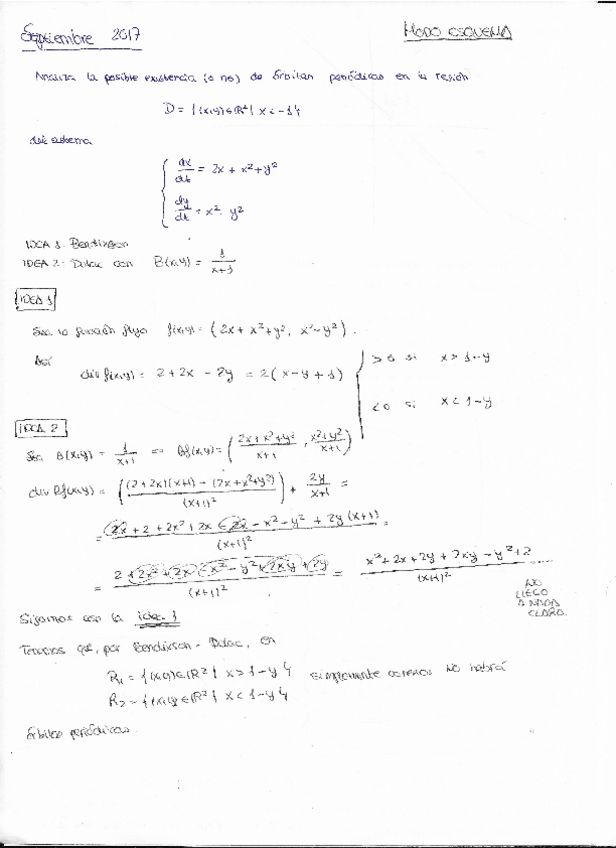 Septiembre 2017
MODO ESQUEMA
Analiza la posible existencia (o no) de órbitas periódicas en la región
D = {(x,y)∈ℝ² | x < -1}
del sistema
dx/dt = 2x + x² + y²
dy/dt = x² - y²
IDEA 1: Bendixson
IDEA 2: Dulac con B(x,y) = 1/(x+1)
IDEA 1
Sea la función flujo f(x,y) = (2x + x² + y², x² - y²).
Así
div f(x,y) = 2 + 2x - 2y = 2(x - y + 1)
> 0 si x > 1 - y
< 0 si x < 1 - y
IDEA 2
Sea B(x,y) = 1/(x+1) ⇒ Bf(x,y) = ((2x + x² + y²)/(x+1), (x² + y²)/(x+1))
div Bf(x,y) = (((2+2x)(x+1) - (2x + x² + y²))/(x+1)²) + 2y/(x+1) =
= (2x + 2 + 2x² + 2x - 2x - x² - y² + 2y(x+1))/(x+1)² =
= (2 + 2x² + 2x - x² - y² + 2xy + 2y)/(x+1)² = (x² + 2x + 2y + 2xy - y² + 2)/(x+1)² ....
NO
LLEGO
A NADA
CLARO.
Sigamos con la idea 1
Tenemos que, por Bendixson - Dulac, en
R₁ = {(x,y)∈ℝ² | x > 1 - y}
simplemente conexos NO habrá
R₂ = {(x,y)∈ℝ² | x < 1 - y}
órbitas periódicas.